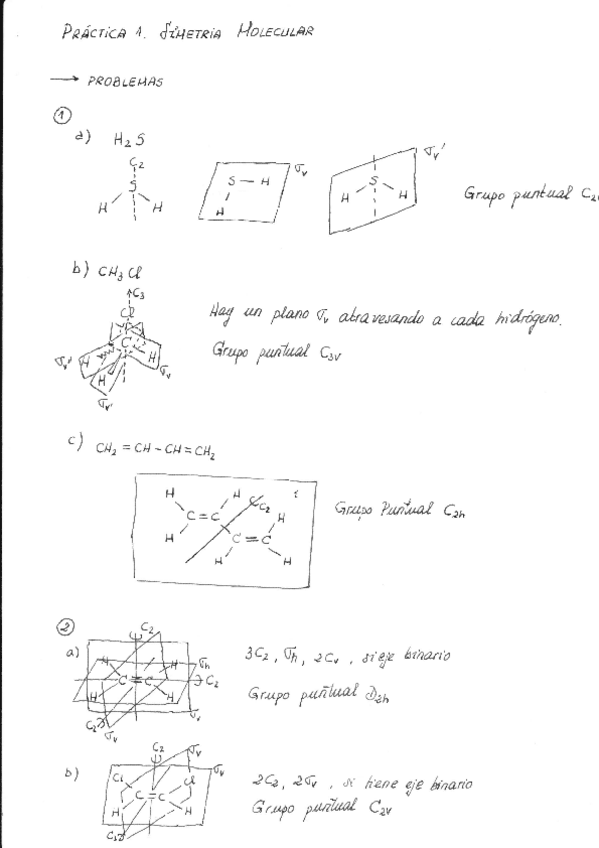 PRÁCTICA 1. SIMETRIA MOLECULAR
→ PROBLEMAS
1
a) H2S
C2
S
H H
S — H
H
σv
S
H H
σv'
Grupo puntual C2v
b) CH3Cl
C3
Cl
C
H H
H
σv'' σv
σv'
Hay un plano σv atravesando a cada hidrógeno.
Grupo puntual C3v
c) CH2 = CH - CH = CH2
H H C2 i
C = C H
H C = C
H H
Grupo Puntual C2h
2
a)
C2
H H σh
C = C C2
H H
C2 σv
σv
3C2, σh, 2Cv, si eje binario
Grupo puntual D2h
b)
C2
σv
σv
Cl Cl
C = C
H H
C2
2C2, 2σv, si tiene eje binario
Grupo puntual C2v